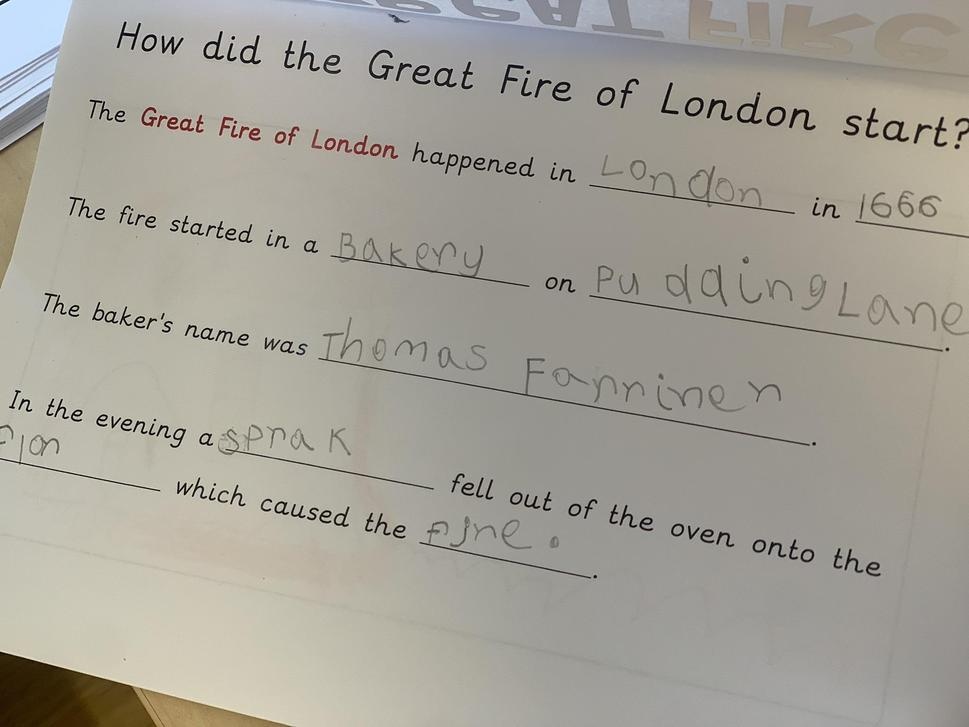 GREAT FIRE
How did the Great Fire of London start?
The Great Fire of London happened in London in 1666
The fire started in a Bakery on Pudding Lane.
The baker's name was Thomas Farriner.
In the evening a sprak fell out of the oven onto the
flor which caused the fire.